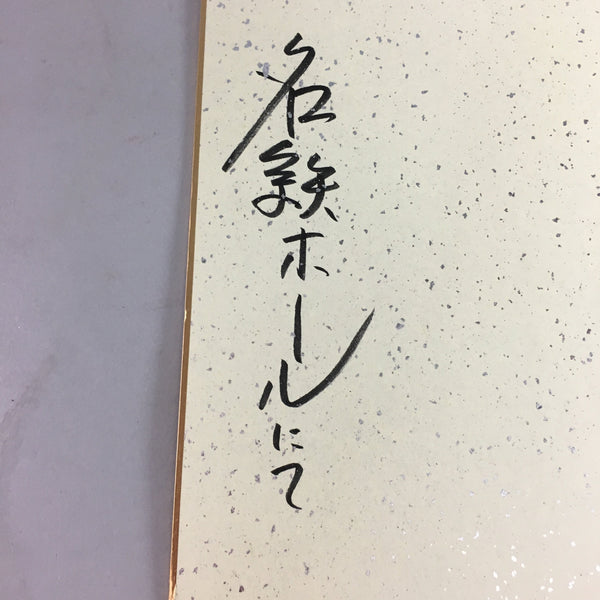 名鉄ホールにて